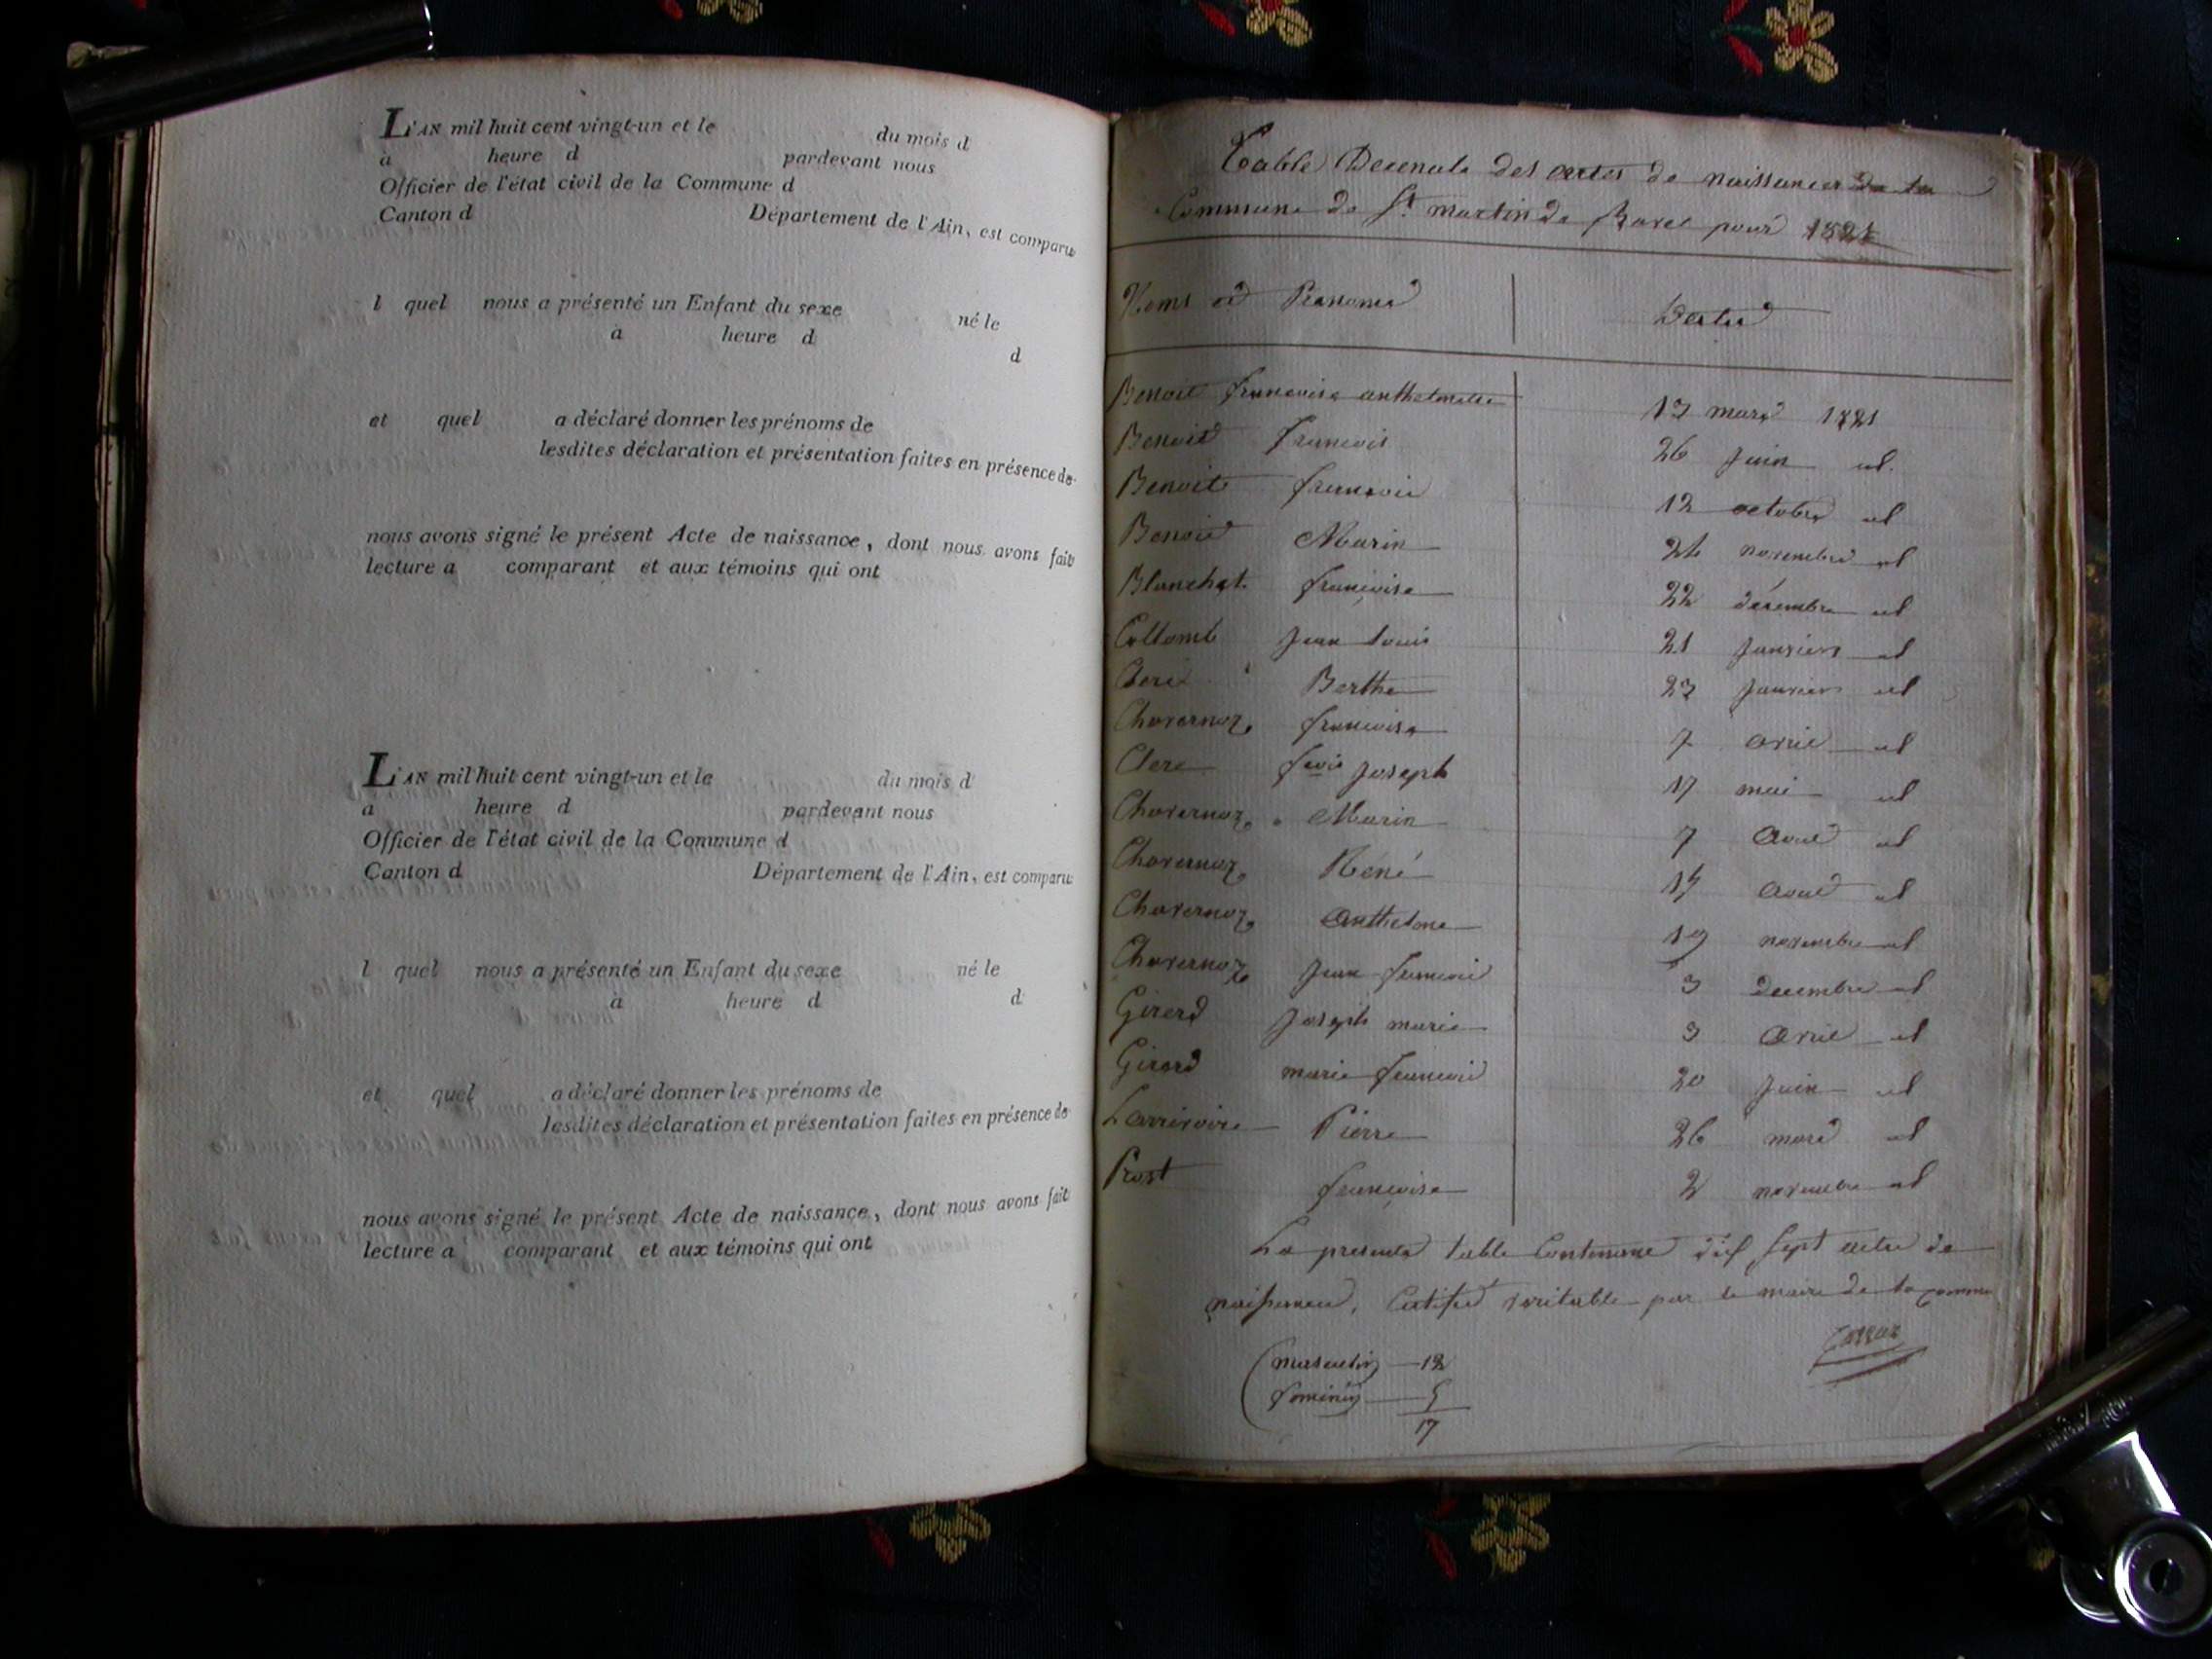 L'AN mil huit cent vingt-un et le du mois d
à heure d pardevant nous
Officier de l'état civil de la Commune d
Canton d Département de l'Ain, est comparu
l quel nous a présenté un Enfant du sexe né le
à heure d d
et quel a déclaré donner les prénoms de
lesdites déclaration et présentation faites en présence de
nous avons signé le présent Acte de naissance, dont nous avons fait
lecture a comparant et aux témoins qui ont
L'AN mil huit cent vingt-un et le du mois d
a heure d pardevant nous
Officier de l'état civil de la Commune d
Canton d Département de l'Ain, est comparu
l quel nous a présenté un Enfant du sexe né le
à heure d d
et quel a déclaré donner les prénoms de
lesdites déclaration et présentation faites en présence de
nous avons signé le présent Acte de naissance, dont nous avons fait
lecture a comparant et aux témoins qui ont
Table Decenale des actes de naissances de la
Commune de St martin de Bavel pour 1821
Noms et Prenoms Dates
Benoit francoise anthelmette 13 mars 1821
Benoit francois 26 Juin id.
Benoit francois 12 octobre id
Benoit Marin 24 novembre id
Blanchat françoise 22 décembre id
Collomb Jean Louis 21 Janvier id
Clerc Berthe 23 Janvier id
Chavernoz francoise 7 avril id
Clerc fçois Joseph 17 mai id
Chavernoz Marin 7 Aout id
Chavernoz René 14 Aout id
Chavernoz Anthelme 19 novembre id
Chavernoz Jean francois 3 decembre id
Girerd Joseph marie 3 Avril id
Girerd marie francois 20 Juin id
Larrivoire Pierre 26 mars id
Prost françoise 2 novembre id
La presente table Contenant dix sept actes de
naissances, Certifié veritable par le maire de la commu
masculin 12
feminin 5
17